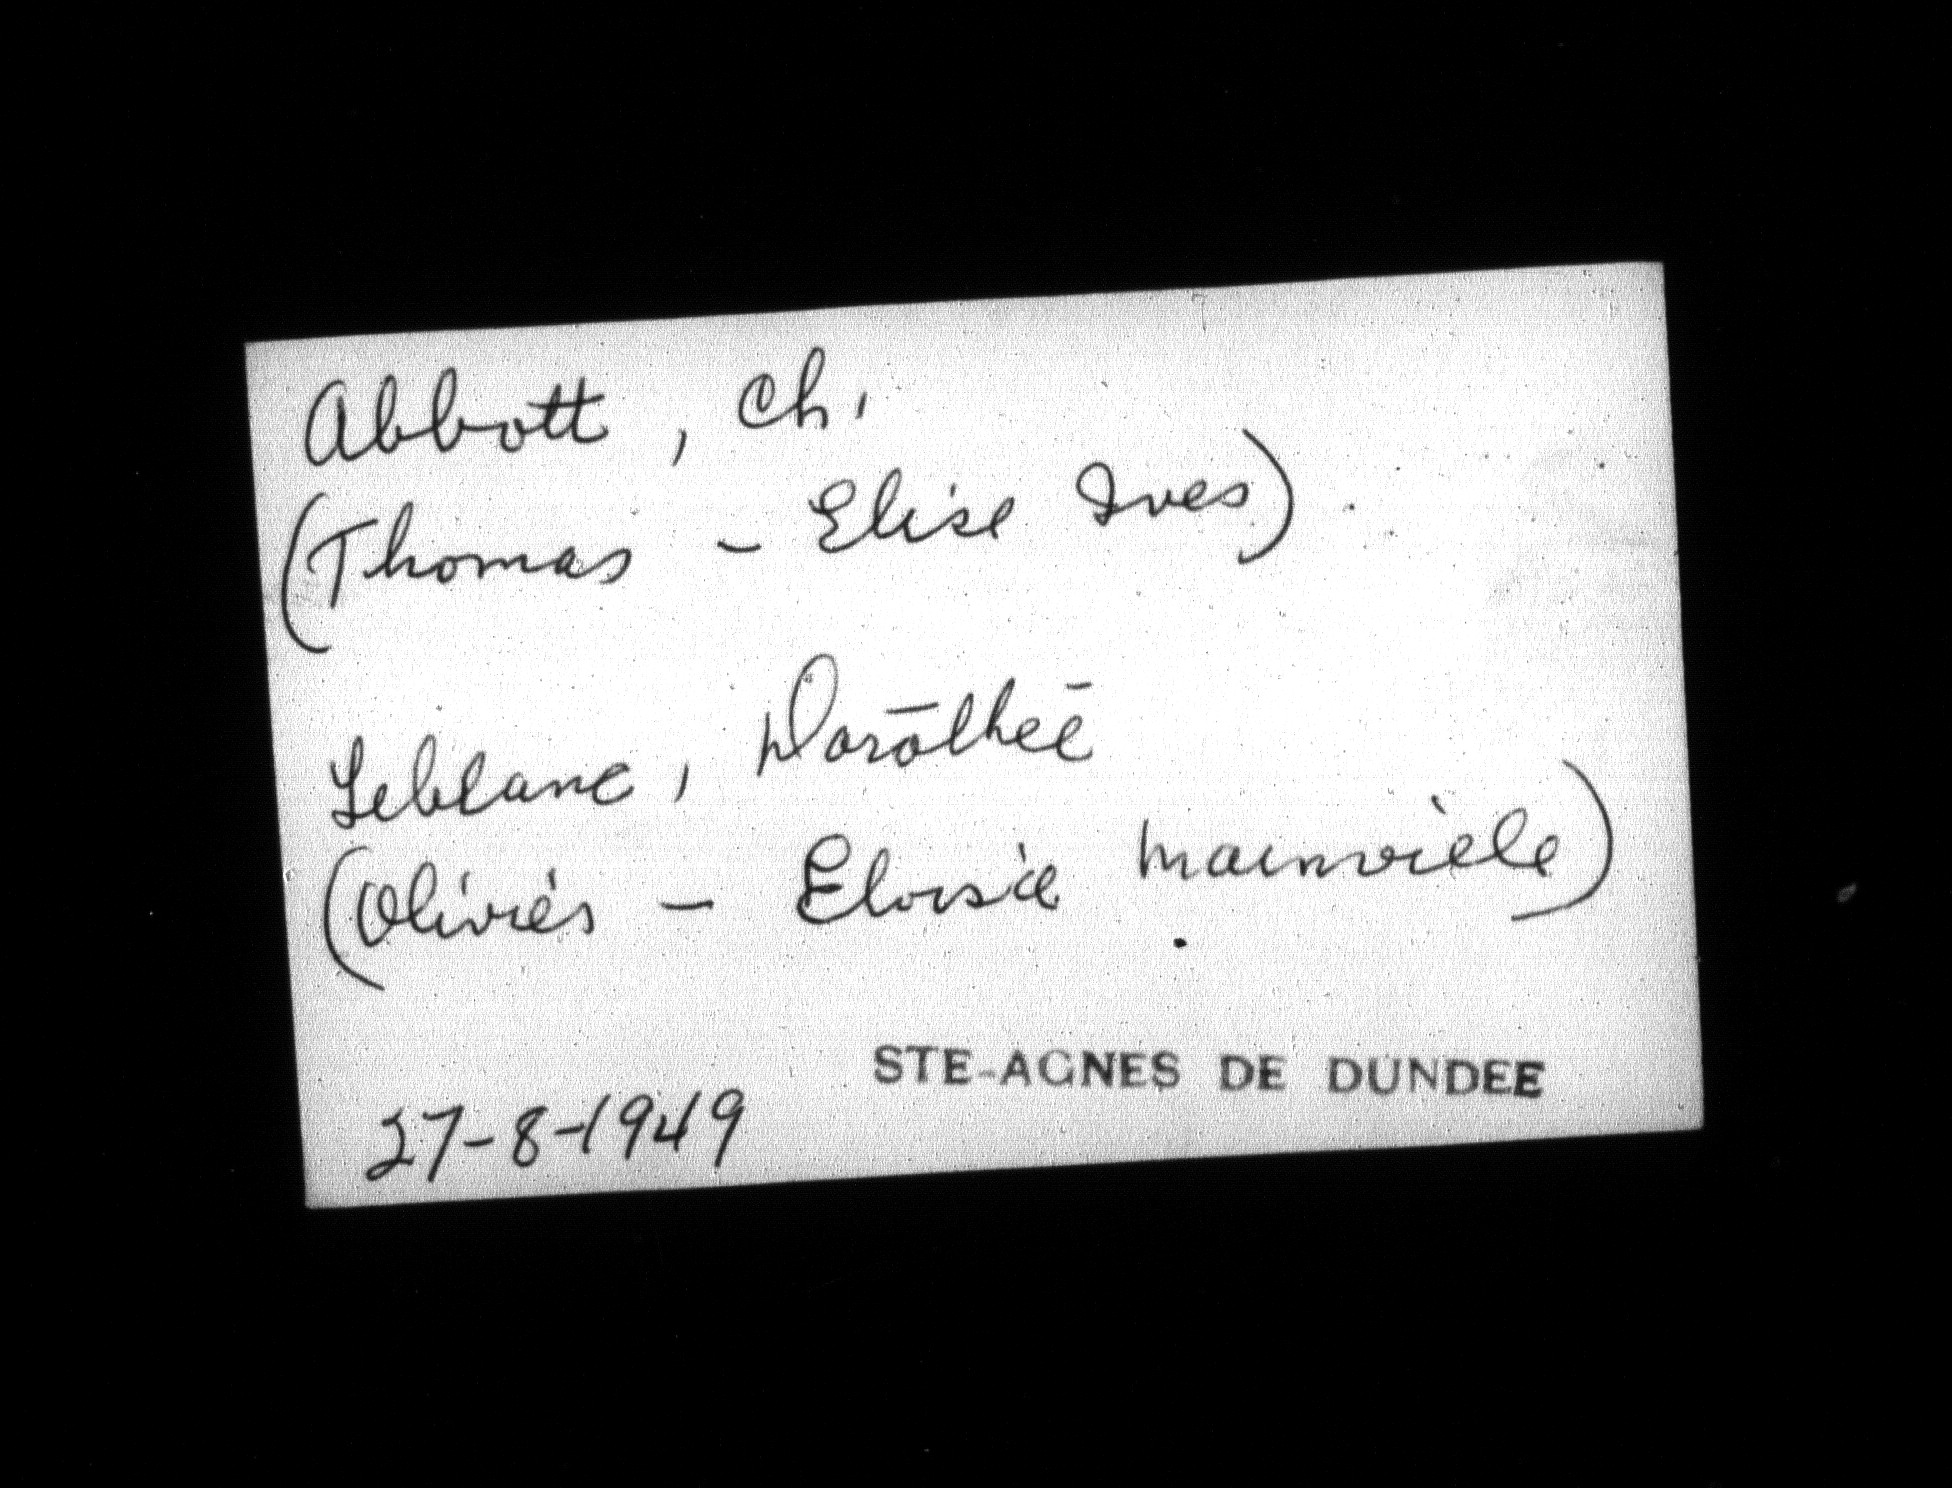 Abbott, Ch.
(Thomas - Elise Ives)
Leblanc, Dorothée
(Olivier - Eloisie Mainville)
STE-AGNES DE DUNDEE
27-8-1949